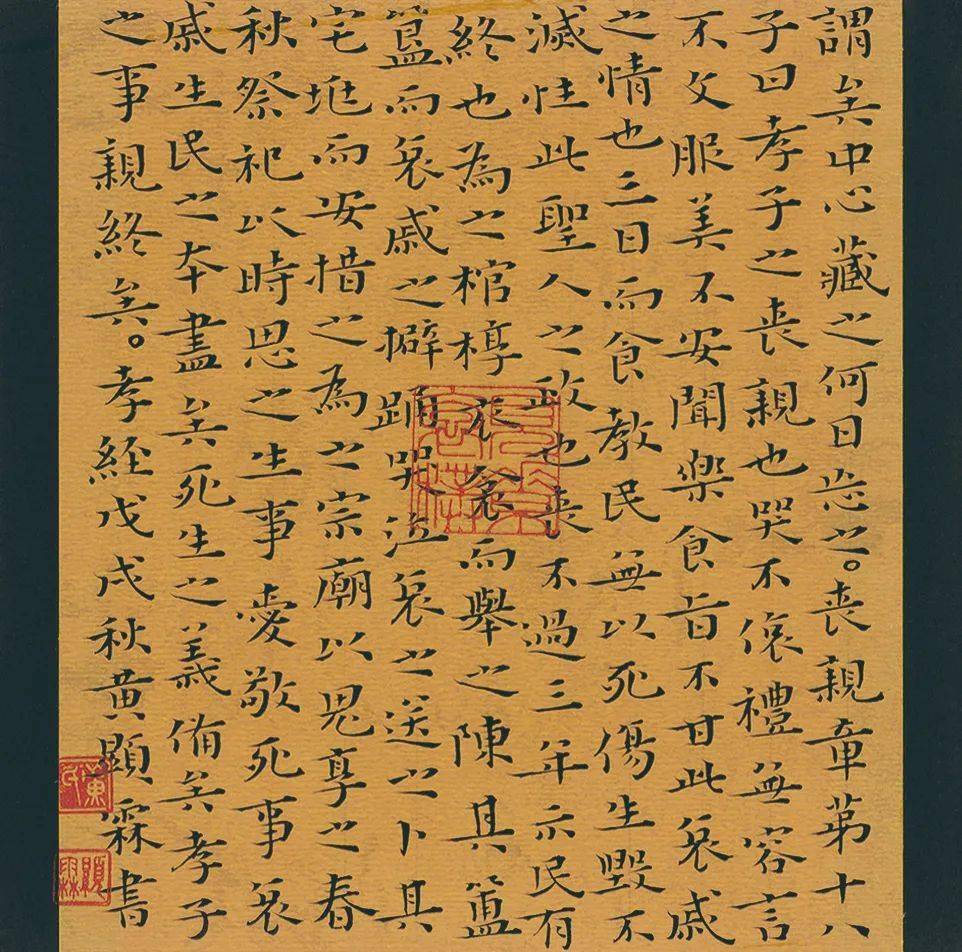 謂矣中心藏之何日忘之。喪親章第十八
子曰孝子之喪親也哭不偯禮無容言
不文服美不安聞樂食旨不甘此哀戚
之情也三日而食教民無以死傷生毀不
滅性此聖人之政也喪不過三年示民有
終也為之棺椁衣衾而舉之陳其簠
簋而哀戚之擗踊哭泣哀之送之卜其
宅垗而安措之為之宗廟以鬼享之春
秋祭祀以時思之生事愛敬死事哀
戚生民之本盡矣死生之義備矣孝子
之事親終矣。孝經戊戌秋黃顯霖書
顯霖